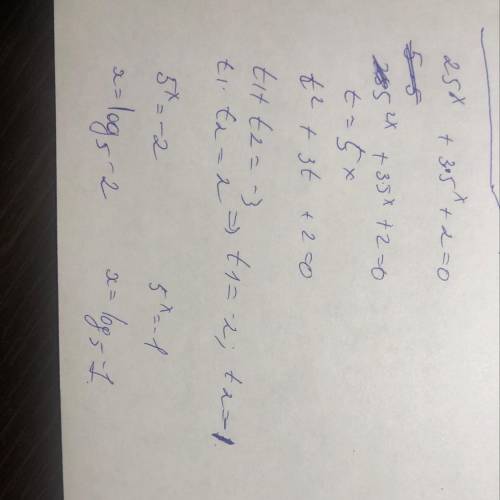 25ˣ + 3·5ˣ + 2 = 0
5²ˣ + 35ˣ + 2 = 0
t = 5x
t² + 3t + 2 = 0
t1 + t2 = -3
t1 · t2 = 2 => t1 = -2; t2 = -1.
5ˣ = -2 5ˣ = -1
x = log5 -2 x = log5 -1.